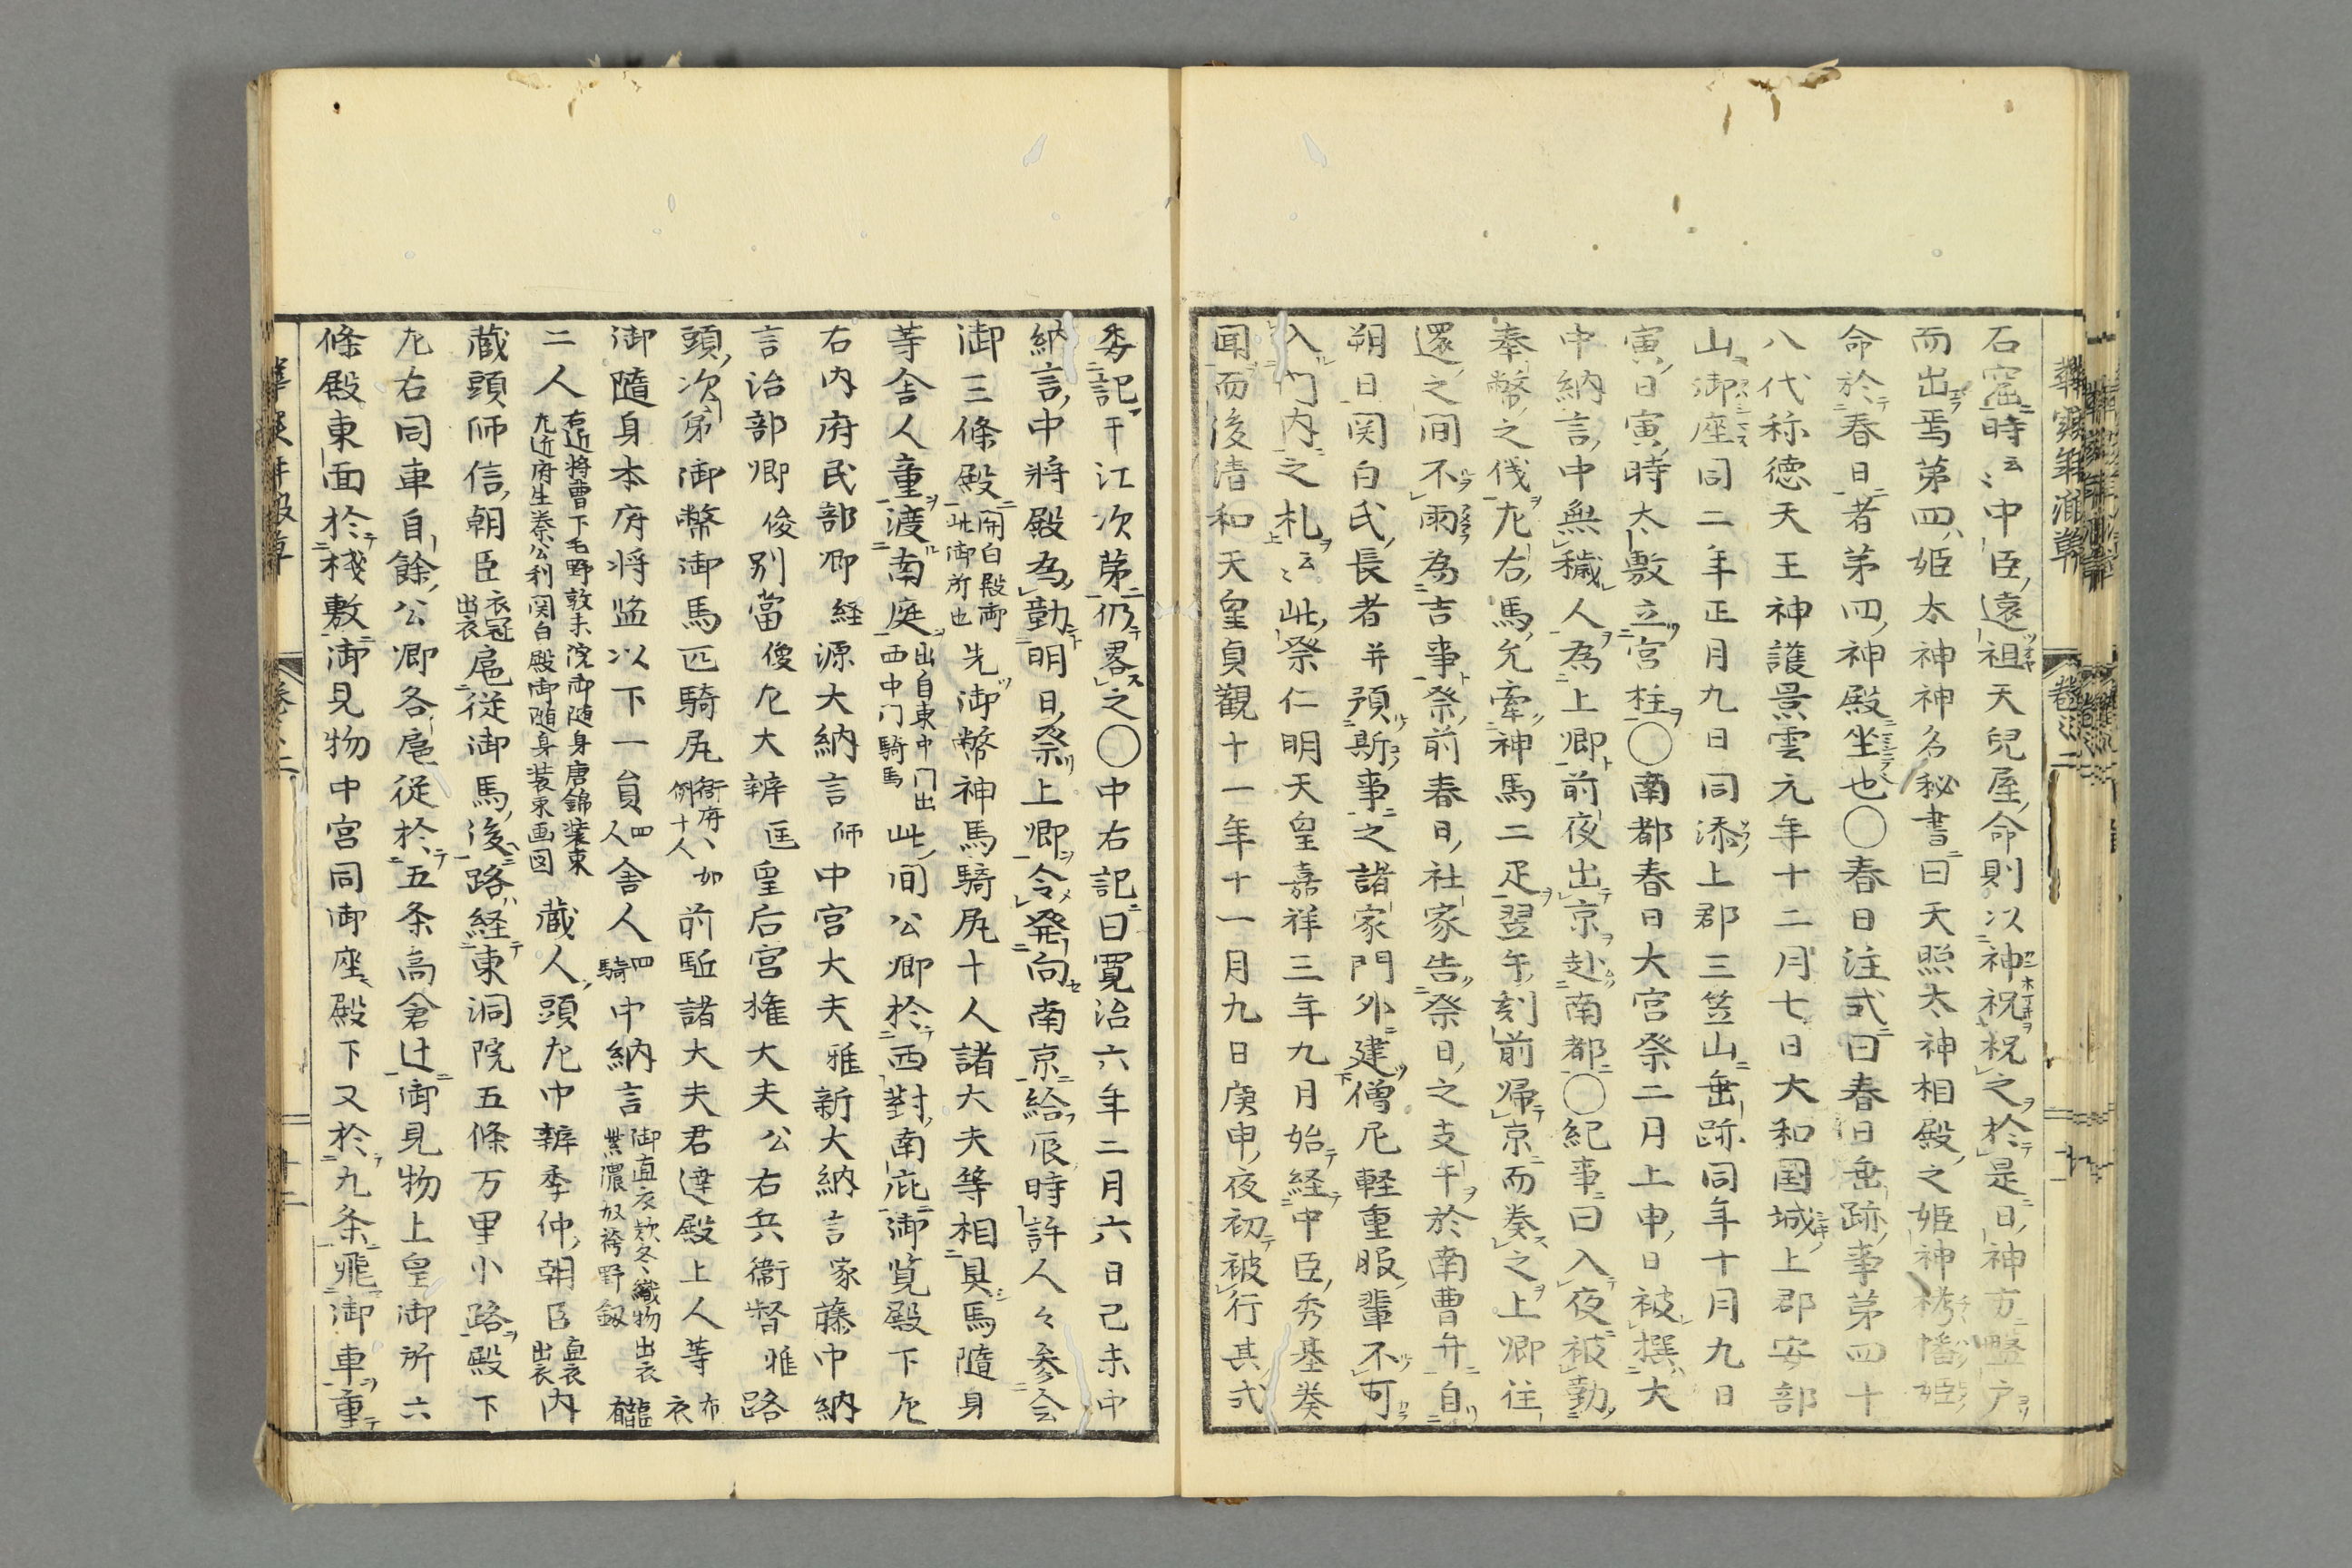 石窟時云〻中臣遠祖天兒屋命則以神祝祝之於是日神方盤戸
而出焉第四姫太神神名秘書曰天照太神相殿之姫神栲幡姫
命於春日者第四神殿坐也〇春日注式曰春日垂跡事第四十
八代称徳天王神護景雲元年十二月七日大和国城上郡安部
山御座同二年正月九日同添上郡三笠山垂跡同年十月九日
寅日寅時太敷立宮柱〇南都春日大宮祭二月上申日被撰大
中納言中無穢人為上卿前夜出京赴南都〇紀事曰入夜被勤
奉幣之伐左右馬允牽神馬二疋翌午刻前帰京而奏之上卿往
還之间不雨為吉事祭前春日社家告祭日之支干於南曹弁自
朔日関白氏長者并預斯事之諸家門外建僧尼軽重服輩不可
入门内之札云〻此祭仁明天皇嘉祥三年九月始経中臣秀基奏
聞而後清和天皇貞觀十一年十一月九日庚申夜初被行其式
委記干江次第仍畧之〇中右記曰寛治六年二月六日己未中
納言中将殿為勤明日祭上卿令発向南京給辰時許人々参会
御三條殿関白殿御此御所也先御幣神馬騎尻十人諸大夫等相具馬隨身
等舍人童渡南庭出自東中门出西中门騎馬此间公卿於西對南庇御覧殿下左
右内府民部卿経源大納言師中宮大夫雅新大納言家藤中納
言治部卿俊別當俊左大辨匡皇后宮権大夫公右兵衛督雅路
頭次第御幣御馬匹騎尻衛府、如例十人前駈諸大夫君達殿上人等布衣
御隨身本府将监以下一員四人舍人四騎中納言御直衣款冬織物出衣紫濃奴袴野釼朧有
二人右近将曹下毛野敦末院御随身唐錦装束左近府生秦公利関白殿御随身装束画図蔵人頭左中辨季仲朝臣直衣出衣内
蔵頭師信朝臣衣冠出衣扈従御馬後路経東洞院五條万里小路殿下
左右同車自餘公卿各扈従於五条高倉辻御見物上皇御所六
條殿東面於桟敷御見物中宮同御座殿下又於九条飛御車重